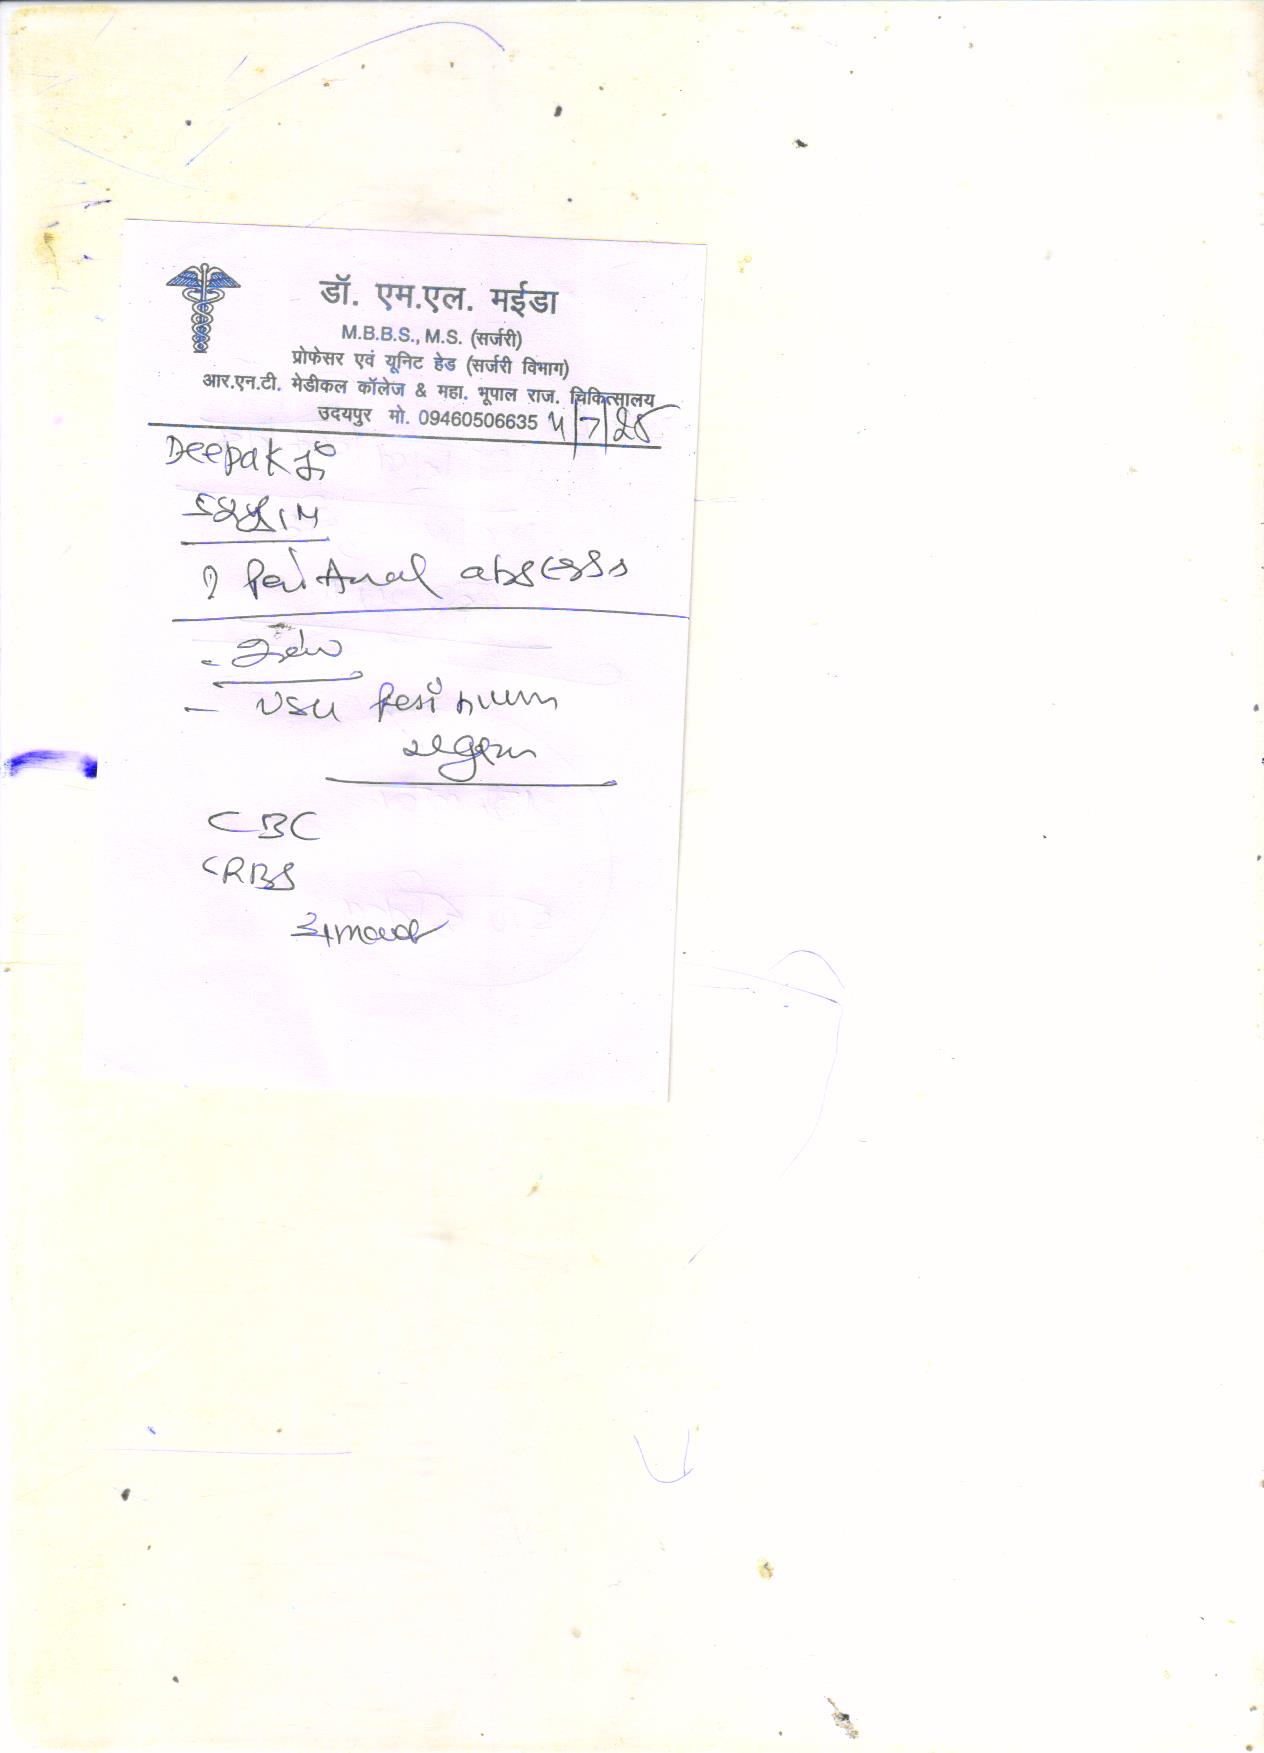 डॉ. एम.एल. मईडा
M.B.B.S., M.S. (सर्जरी)
प्रोफेसर एवं यूनिट हेड (सर्जरी विभाग)
आर.एन.टी. मेडीकल कॉलेज & महा. भूपाल राज. चिकित्सालय
उदयपुर मो. 09460506635 4/7/25
Deepak
? Peri Anal abscess
- Adv
- USG Perinium
region
CBC
RBS